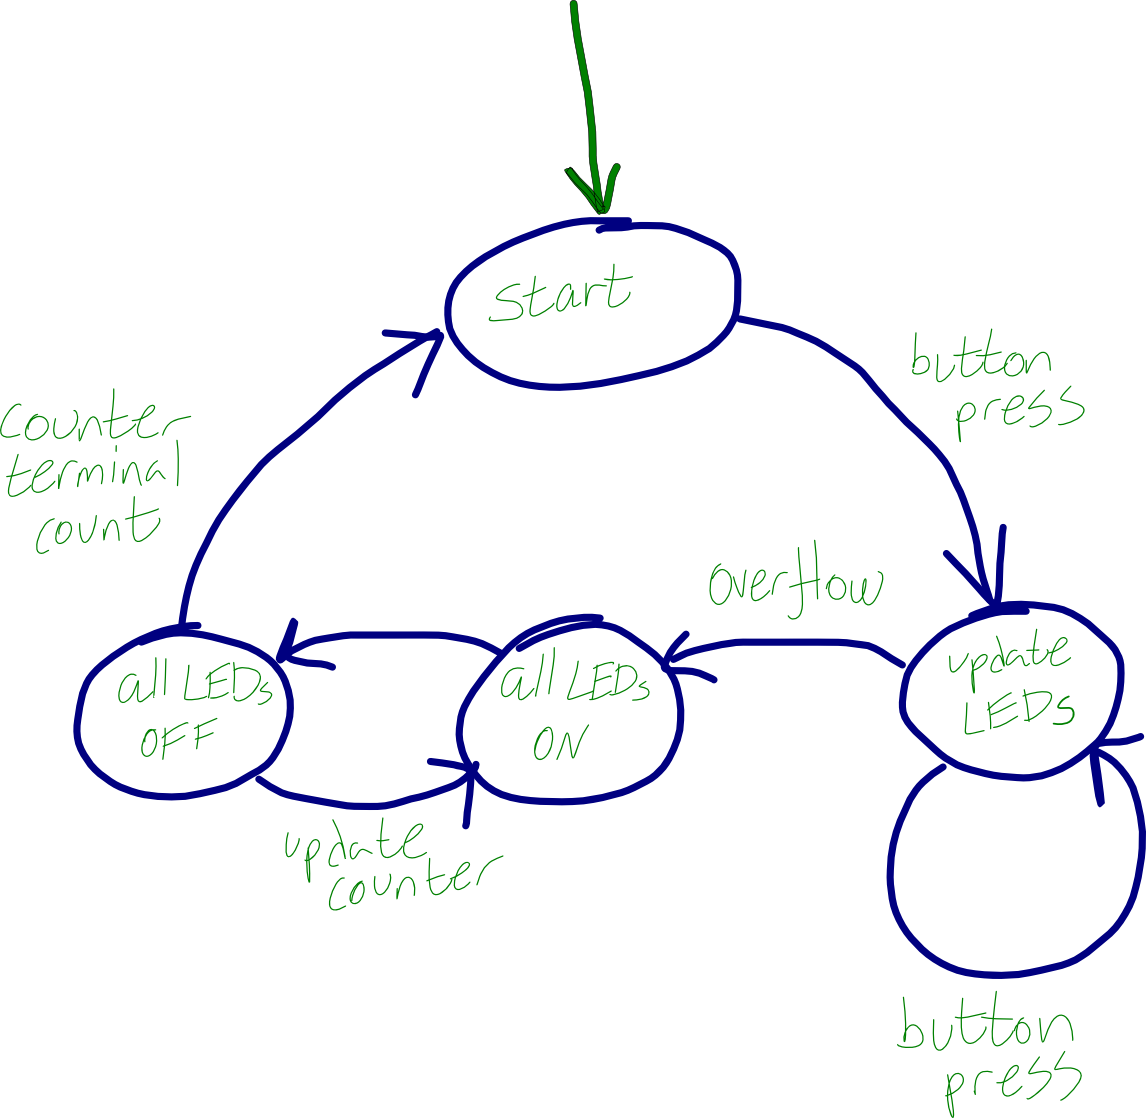 start
button
press
counter
terminal
count
overflow
update
LEDs
all LEDs
ON
all LEDs
OFF
update
counter
button
press